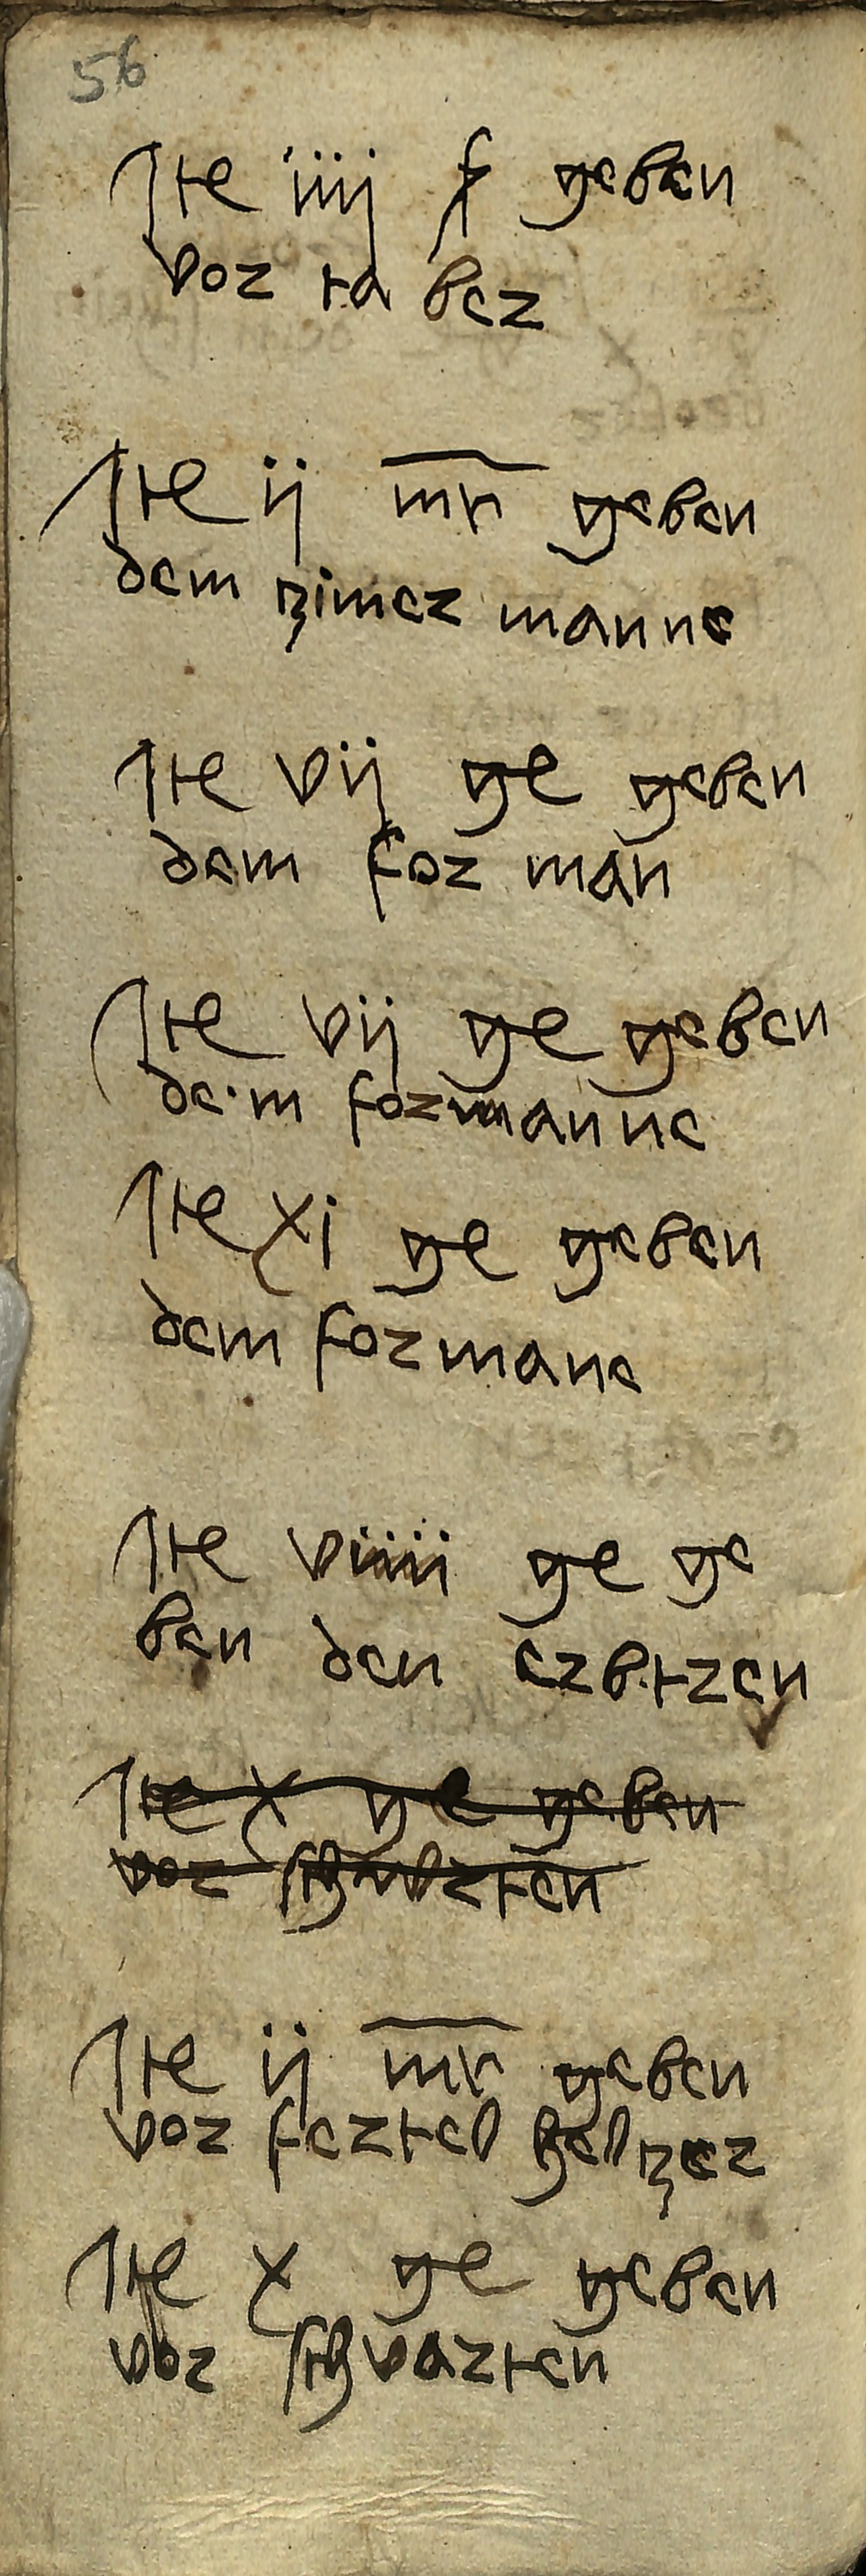 56
Ite iiij f geben
vor ta ber
Ite ij mr geben
dem zimer manne
Ite vij ge geben
dem for man
Ite vij ge geben
dem formanne
Ite xi ge geben
dem formane
Ite viiii ge ge
ben den erbtren
Ite x ge geben
vor schvarten
Ite ij mr geben
vor fertel helzer
Ite x ge geben
vor schvarten